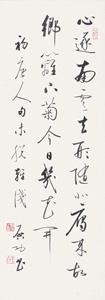 心逐南雲去形隨北雁來故
鄉籬下菊今日幾花開
初唐人句
啟功書